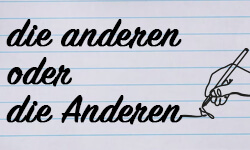 die anderen
oder
die Anderen